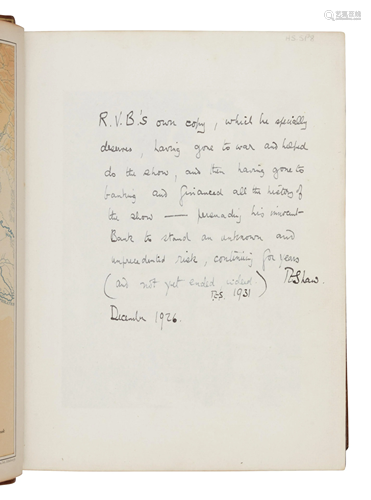 R.V.B.'s own copy, which he specially
deserves, having gone to war and helped
do the show, and then having gone to
banking and financed all the history of
the show — persuading his innocent
Bank to stand an unknown and
unprecedented risk, continuing for years
(and not yet ended, indeed.) TEShaw.
T.E.S. 1931
December 1926.